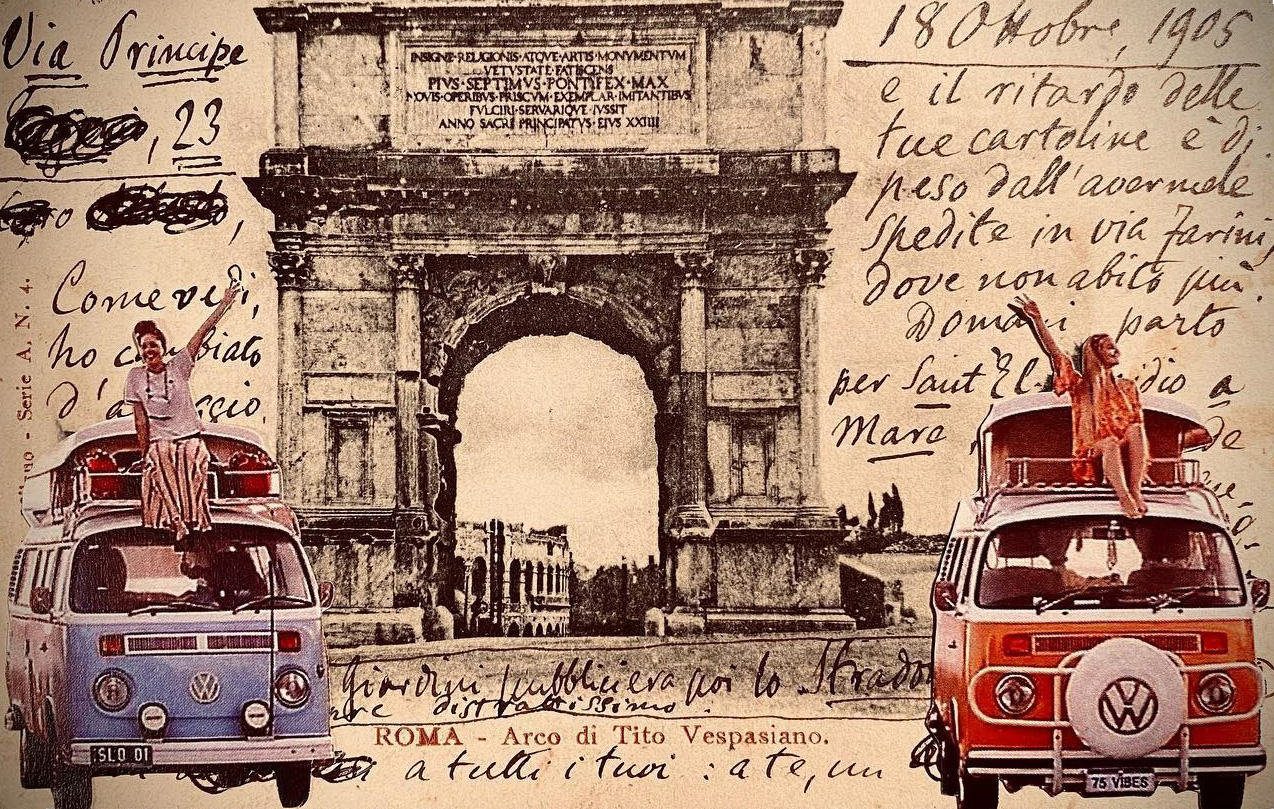 Via Principe
, 23
Come vedi,
ho cambiato
d'a ggio,
18 Ottobre, 1905
e il ritardo delle
tue cartoline è di
peso dall'avermele
spedite in via Farini,
dove non abito più.
Domani parto
per Sant'El idio a
Mare
INSIGNE·RELIGIONIS·ATQVE·ARTIS·MONVMENTVM
VETVSTATE·FATISCENS
PIVS·SEPTIMVS·PONTIFEX·MAX
NOVIS·OPERIBVS·PRISCVM·EXEMPLAR·IMITANTIBVS
FVLCIRI·SERVARIQVE·IVSSIT
ANNO·SACRI·PRINCIPATVS·EIVS·XXIIII
- Serie A, N. 4.
Giardini pubblici era poi lo Strado
distrattissimo.
ROMA - Arco di Tito Vespasiano.
a tutti i tuoi : a te, un
SLO 01
75 VIBES